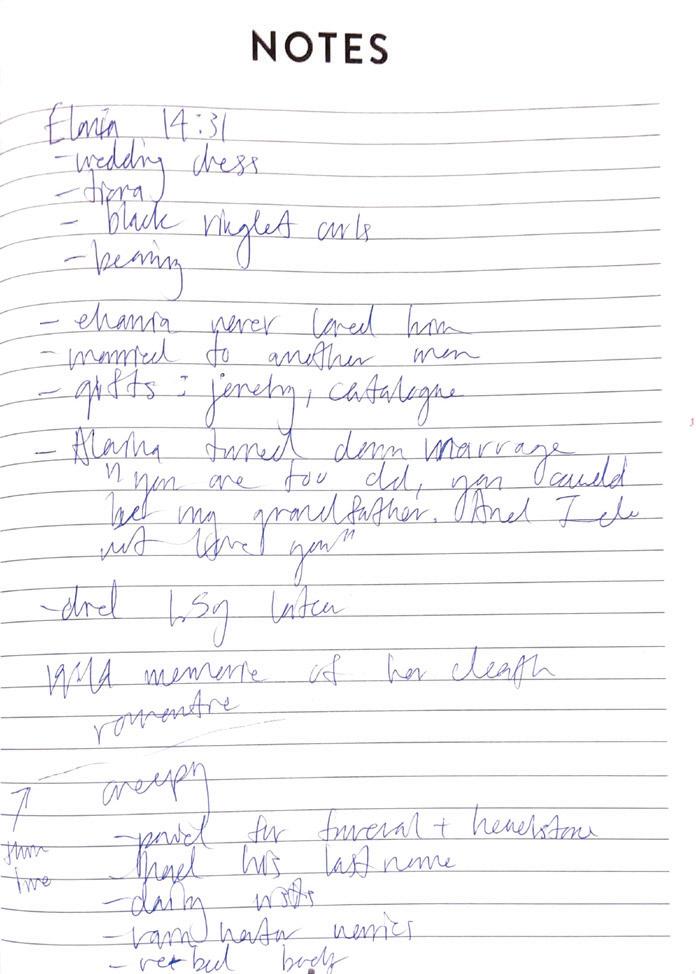 NOTES
Elania 14:31
- wedding dress
- tiara
- black ringlet curls
- beaming
- elania never loved him
- married to another man
- gifts: jewelry, catalogue
- Alasha turned down marrage
"you are too old, you could
be my grandfather. And I do
not love you"
- died later
memorie of her death
romantic
creepy
- paid for funeral + headstone
- had his last name
- daily visits
- body